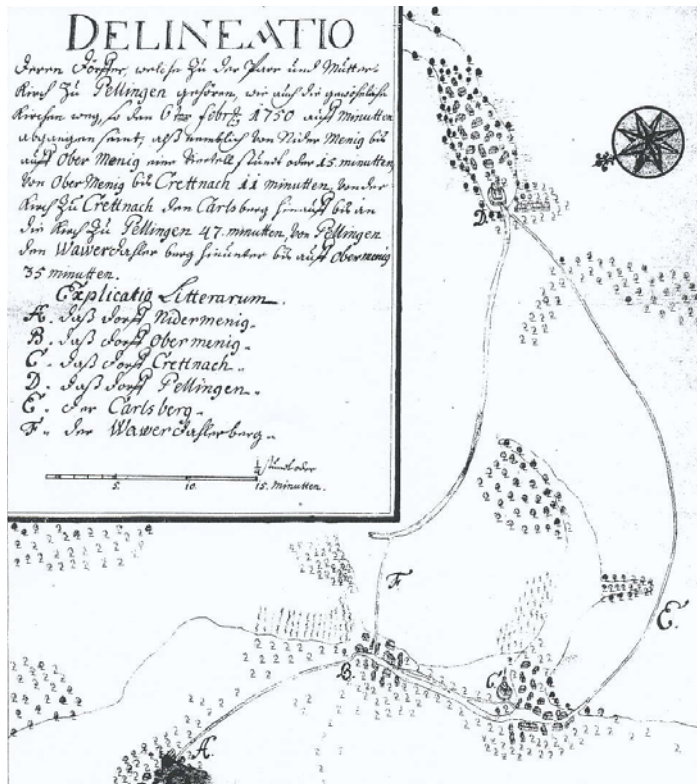 DELINEATIO
deren Dörffer, welche zu der Pfarr und Mutter-
Kirch zu Pellingen gehören, wie auch die gewöhnliche
Kirchen weg, so den 6ten febr 1750 auff minutten
abgangen seint, alß nemblich von Nider Menig bis
auff Ober Menig eine viertell stundt oder 15 minutten,
von Ober Menig bis Crettnach 11 minutten, von der
Kirch zu Crettnach den Carlsberg hinauff bis an
die Kirch zu Pellingen 47. minutten, von Pellingen
den Wawerdahller berg hinunter bis auff obermenig
35 minutten.
Explicatio Litterarum.
A. daß dorff Nidermenig.
B. daß dorff Obermenig.
C. daß dorff Crettnach.
D. daß dorff Pellingen.
E. der Carlsberg.
F. der Wawerdahlerberg.
¼ stundt oder
5. 10. 15. Minutten.
D.
F.
E.
B.
C.
A.